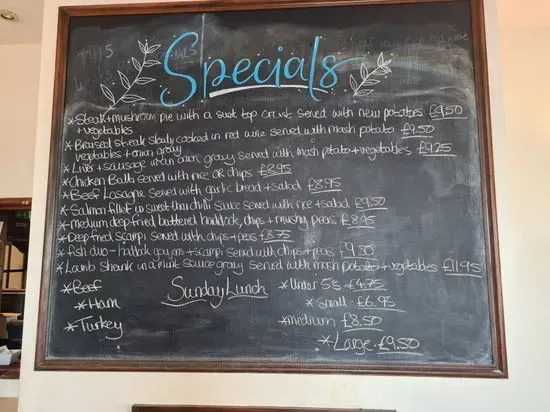 Specials
*Steak+mushroom pie with a suet top crust served with new potatoes £9.50
+vegetables
*Braised steak slowly cooked in red wine served with mash potato £9.50
vegetables + onion gravy
*Liver + sausage in an onion gravy served with mash potato+vegetables £9.25
*Chicken Balti served with rice OR chips £8.95
*Beef Lasagne served with garlic bread+salad £8.95
*Salmon fillet w sweet thai chilli sauce served with rice+salad £9.50
*medium deep fried battered haddock, chips + mushy peas £8.95
*Deep fried scampi served with chips+peas £8.75
*fish duo - haddock goujons + scampi served with chips+peas £9.50
*Lamb Shank in a mint sauce gravy served with mash potato + vegetables £11.95
Sunday Lunch
*Beef
*Ham
*Turkey
*Under 5's £4.75
*Small £6.95
*medium £8.50
*Large £9.50